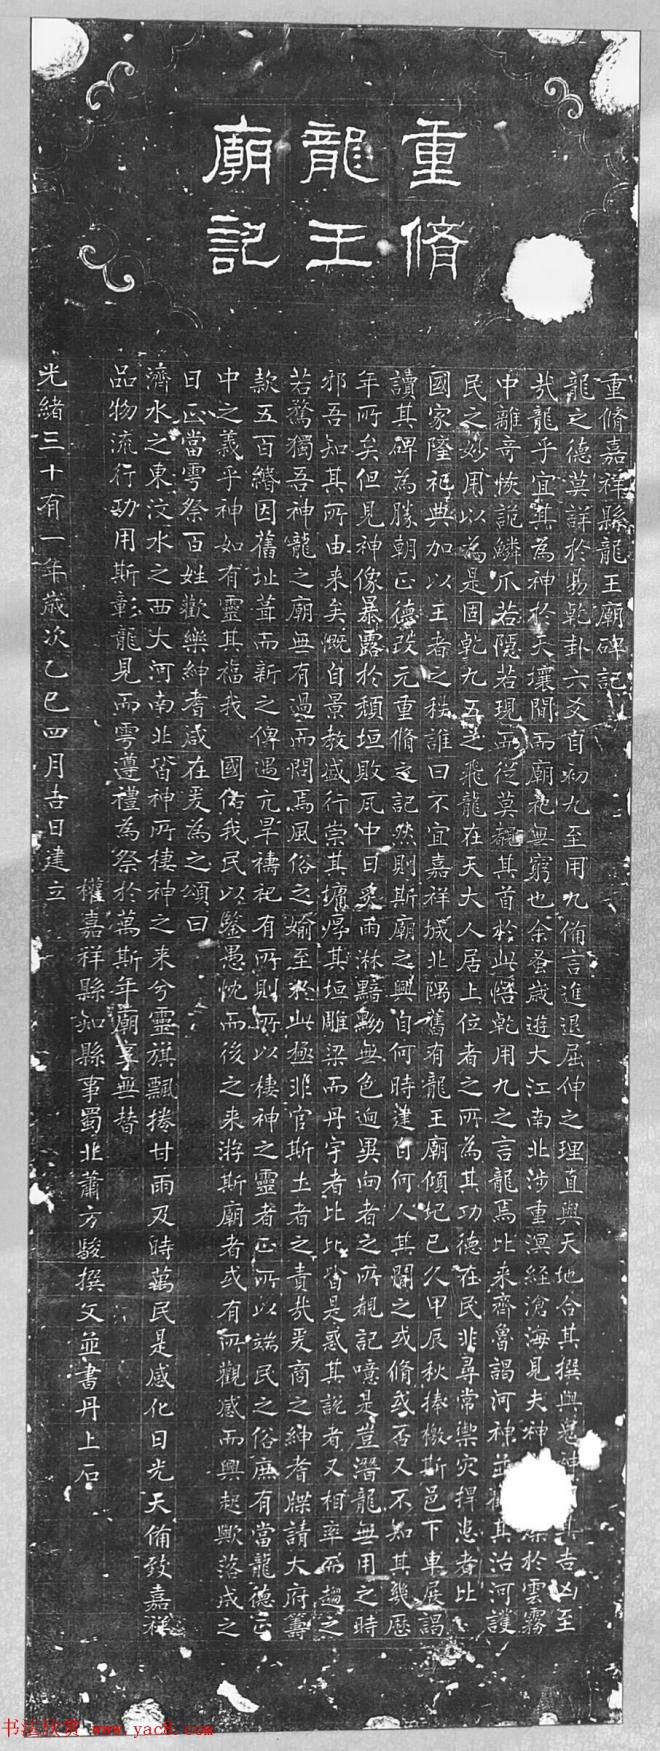 重脩
龍王
廟記
重脩嘉祥縣龍王廟碑記
龍之德莫詳於易乾卦六爻自初九至用九備言進退屈伸之理直與天地合其撰與鬼神其吉凶至
哉龍乎宜其為神於天壤間而廟祀無窮也余蚤歲遊大江南北涉重溟經滄海見夫神於雲霧
中離奇恢詭鱗爪若隱若現而從莫覩其首於此悟乾用九之言龍焉比來齊魯謁河神並其治河護
民之妙用以為是固乾九五之飛龍在天大人居上位者之所為其功德在民非尋常禦災捍患者比
國家隆祀典加以王者之秩誰曰不宜嘉祥城北隅舊有龍王廟傾圮已久甲辰秋捧檄斯邑下車展謁
讀其碑為勝朝正德改元重脩之記然則斯廟之興自何時建自何人其間之或脩或否又不知其幾歷
年所矣但見神像暴露於頹垣敗瓦中日炙雨淋黯黝無色迥異向者之所覩記噫是豈潛龍無用之時
邪吾知其所由來矣慨自景教盛行崇其墉厚其垣雕梁而丹宇者比比皆是惑其說者又相率而趨之
若驁獨吾神龍之廟無有過而問焉風俗之媮至於此極非官斯土者之責哉爰商之紳耆牒請大府籌
款五百緡因舊址葺而新之俾遇亢旱禱祀有所則所以棲神之靈者正所以端民之俗庶有當龍德正
中之義乎神如有靈其福我 國佑我民以鑒愚忱而後之來游斯廟者或有所觀感而興起歟落成之
日正當雩祭百姓歡樂紳耆咸在爰為之頌曰
濟水之東汶水之西大河南北皆神所棲神之來兮靈旗飄捲甘雨及時萬民是感化日光天備致嘉祥
品物流行功用斯彰龍見而雩遵禮為祭於萬斯年廟享無替
權嘉祥縣知縣事蜀北蕭方駿撰文並書丹上石
光緒三十有一年歲次乙巳四月吉日建立
书法欣赏 www.yac8.com